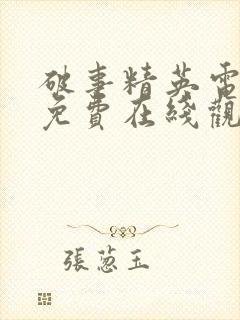 破事精英電
免費在綫觀
張蔥玉